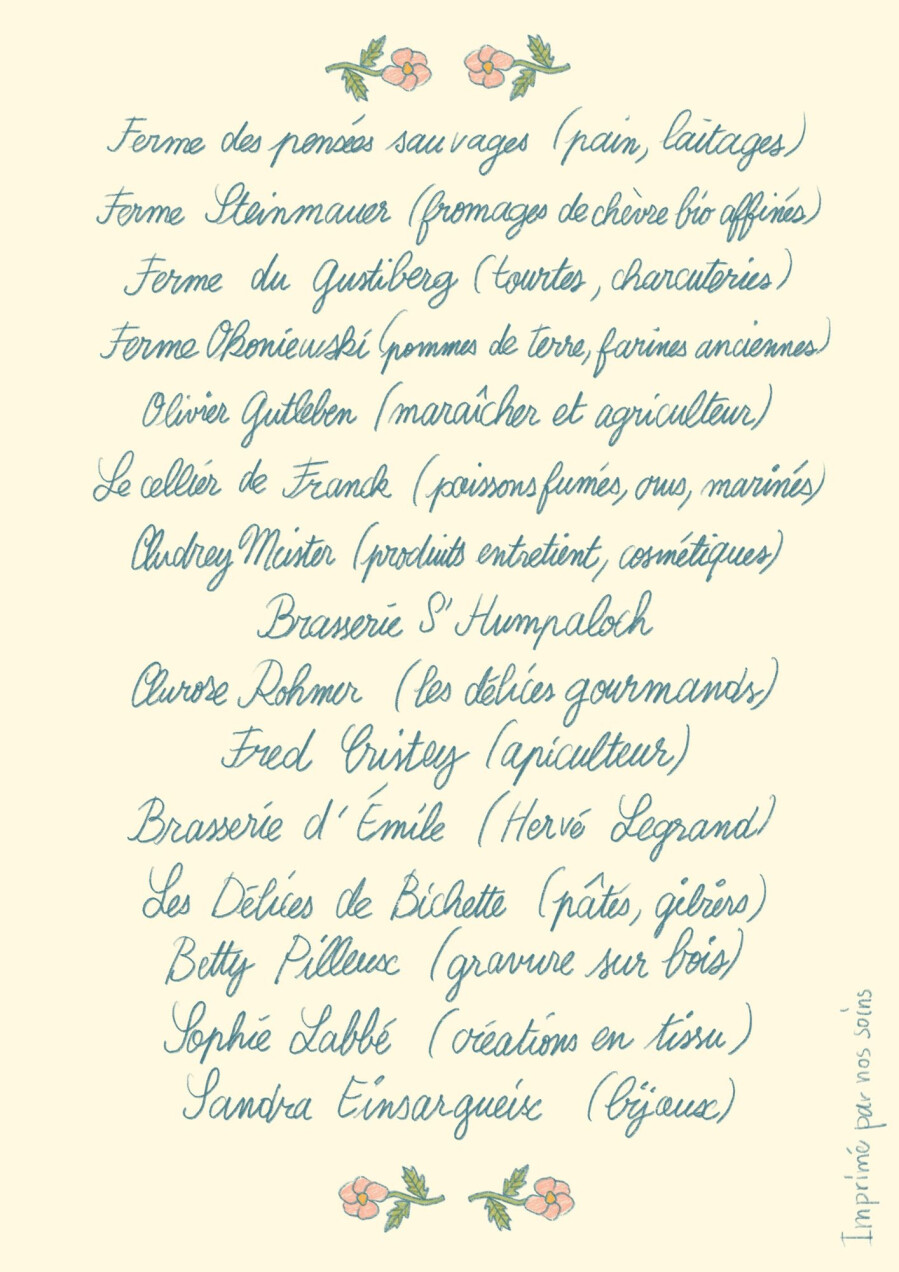 Ferme des pensées sauvages (pain, laitages)
Ferme Steinmauer (fromages de chèvre bio affinés)
Ferme du Gustiberg (tourtes, charcuteries)
Ferme Okoniewski (pommes de terre, farines anciennes)
Olivier Gutleben (maraîcher et agriculteur)
Le cellier de Franck (poissons fumés, crus, marinés)
Audrey Meister (produits entretient, cosmétiques)
Brasserie S'Humpaloch
Aurose Rohmer (les délices gourmands)
Fred Cristey (apiculteur)
Brasserie d'Émile (Hervé Legrand)
Les Délices de Bichette (pâtés, gibiers)
Betty Pilleux (gravure sur bois)
Sophie Labbé (créations en tissu)
Sandra Einsargueix (bijoux)
Imprimé par nos soins